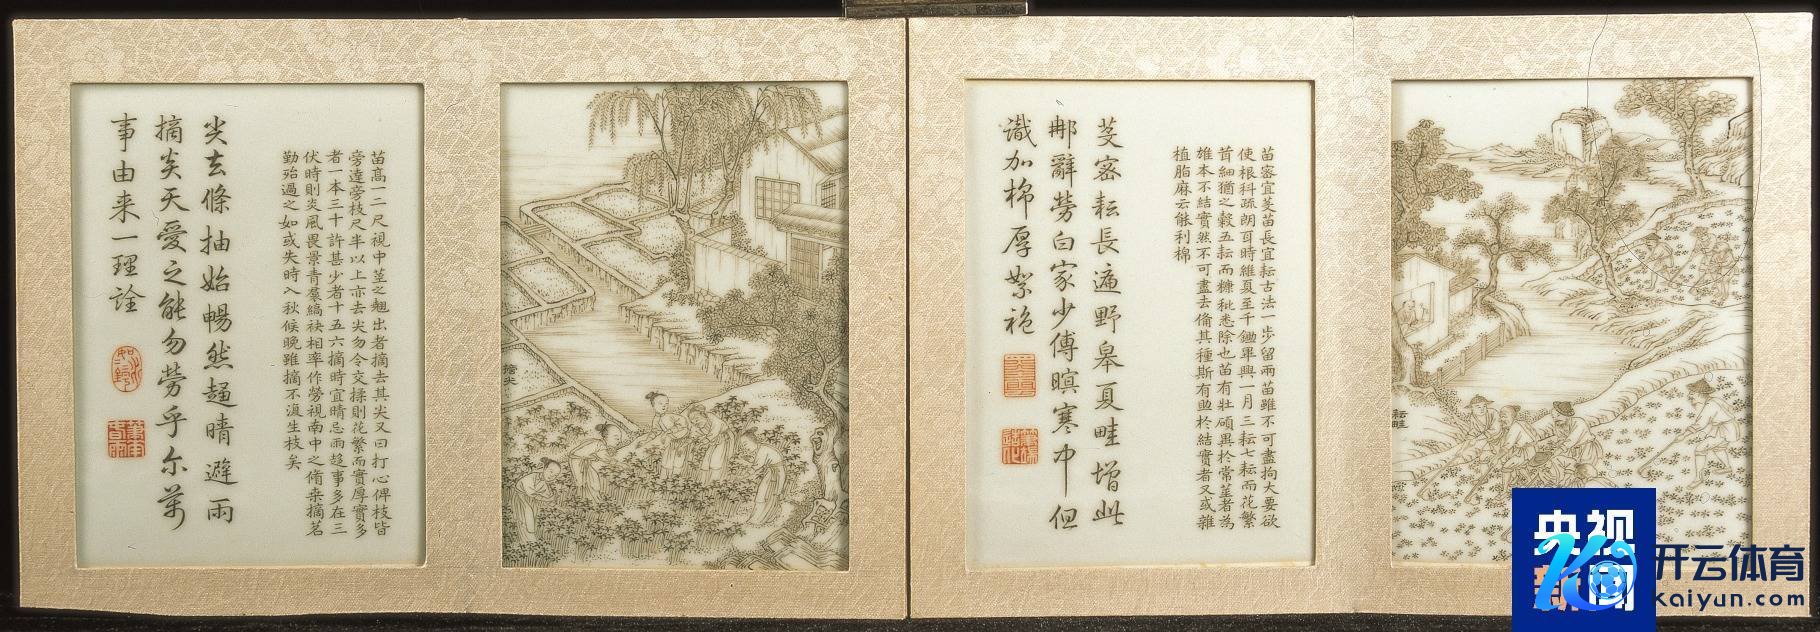 耘畦
苗密宜芟苗長宜耘古法一步留兩苗雖不可盡拘大要欲
使根科疏朗耳時維夏至千鋤畢興一月三耘七耘而花繁
茸細猶之穀五耘而糠秕悉除也苗有壯碩異於常莖者為
雄本不結實然不可盡去備其種斯有助於結實者又或雜
植脂麻云能利棉
芟密耘長遍野皋夏畦增此
那辭勞白家少傅暝寒中但
識加棉厚絮袍
摘尖
苗高一二尺視中莖之翹出者摘去其尖又曰打心俾枝皆
旁達旁枝尺半以上亦去尖勿令交揉則花繁而實厚實多
者一本三十許甚少者十五六摘時宜晴忌雨趨事多在三
伏時則炎風畏景青裙縞袂相率作勞視南中之脩桑摘茗
勤殆過之如或失時入秋候晚雖摘不復生枝矣
尖去條抽始暢然趨晴避雨
摘炎天愛之能勿勞乎尔萬
事由来一理詮
央视
开云体育
Kaiyun.com